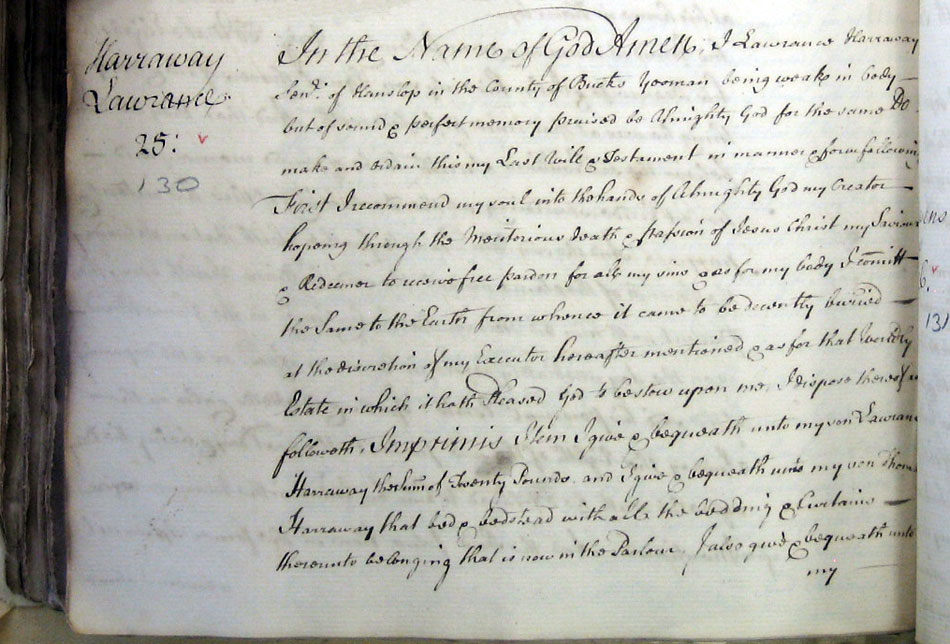 Harraway
Lawrance
25:
130
In the Name of God Amen, I Lawrance Harraway
Senr. of Hanslop in the County of Bucks Yeoman being weake in body
but of sound & perfect memory praised be Almighty God for the same Do
make and ordain this my Last Will & Testament in manner & forme following
First I recommend my soul into the hands of Almighty God my Creator
hopeing through the Meritorious death & Passion of Jesus Christ my Saviour
& Redeemer to receive free pardon for all my sins & as for my body I comitt
the Same to the Earth from whence it came to be decently buried
at the discretion of my Executor hereafter mentioned & as for that Worldly
Estate in which it hath Pleased God to bestow upon me, I dispose thereof as
followeth, Imprimis Item I give & bequeath unto my son Lawrance
Harraway the Sum of Twenty Pounds, and I give & bequeath unto my son Thomas
Harraway that bed & bedstead with all the bedding & Curtains
thereunto belonging that is now in the Parlour, I also give & bequeath unto
my
131